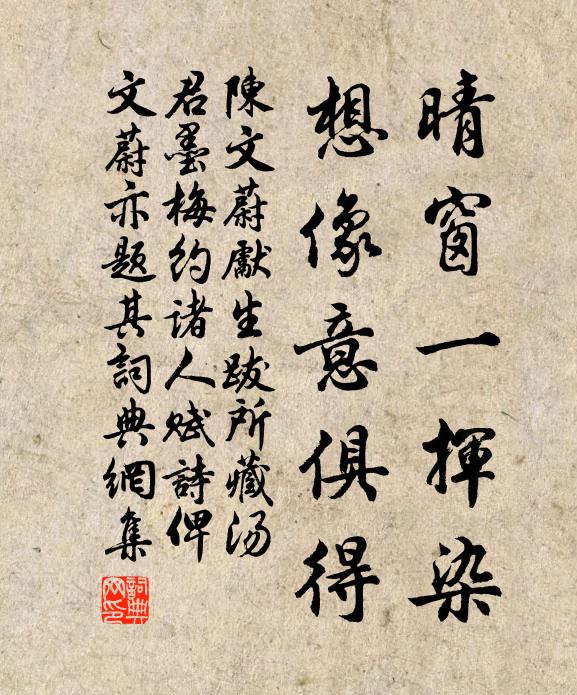 晴窗一揮染
想像意俱得
陳文蔚獻生跋所藏湯
君墨梅約諸人賦詩俾
文蔚亦題其詞典網集
詞典網印